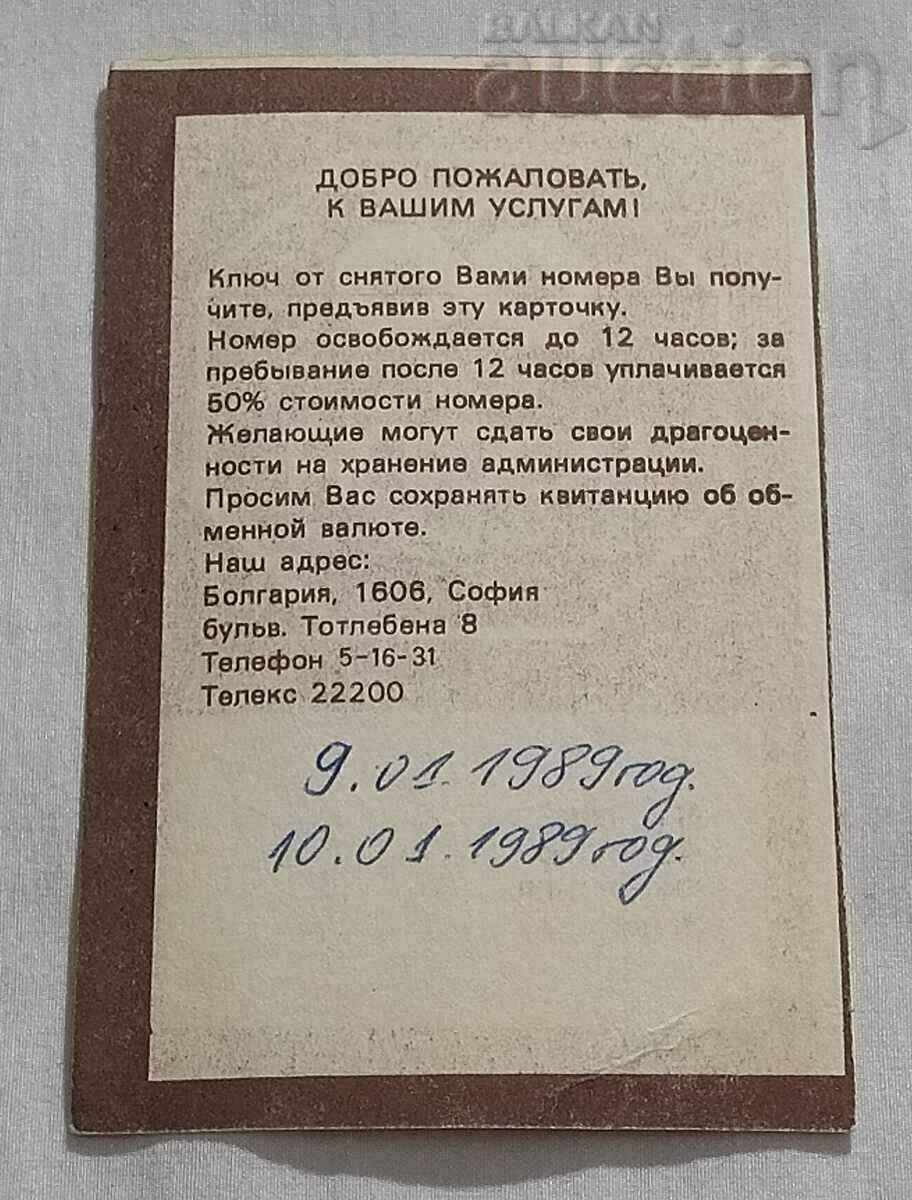 BALKAN
auction
ДОБРО ПОЖАЛОВАТЬ,
К ВАШИМ УСЛУГАМ!
Ключ от снятого Вами номера Вы полу-
чите, предъявив эту карточку.
Номер освобождается до 12 часов; за
пребывание после 12 часов уплачивается
50% стоимости номера.
Желающие могут сдать свои драгоцен-
ности на хранение администрации.
Просим Вас сохранять квитанцию об об-
менной валюте.
Наш адрес:
Болгария, 1606, София
бульв. Тотлебена 8
Телефон 5-16-31
Телекс 22200
9.01.1989год.
10.01.1989год.